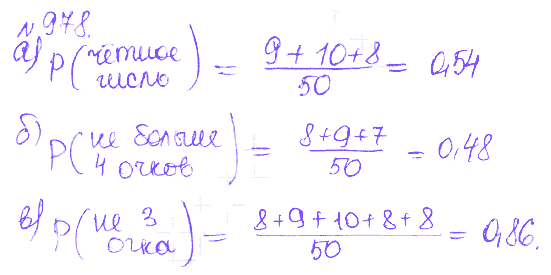 № 978.
а) P(чётное число) = 9 + 10 + 8 / 50 = 0,54
б) P(не больше 4 очков) = 8 + 9 + 7 / 50 = 0,48
в) P(не 3 очка) = 8 + 9 + 10 + 8 + 8 / 50 = 0,86.